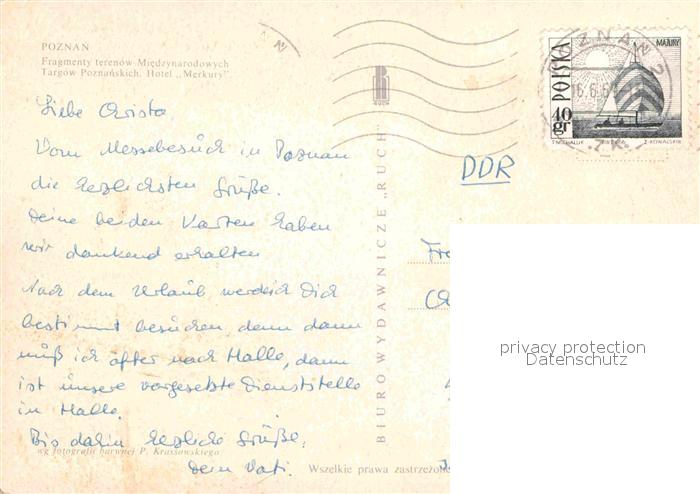 POZNAŃ
Fragmenty terenów Międzynarodowych
Targów Poznańskich. Hotel „Merkury"
Liebe Christa,
Vom Messebesuch in Poznan
die herzlichsten Grüße.
Deine beiden Karten haben
wir dankend erhalten
Nach dem Urlaub, werde ich Dich
bestimmt besuchen, denn dann
muß ich öfter nach Halle, dann
ist unsere vorgesetzte Dienststelle
in Halle.
Bis dahin herzliche Grüße,
Dein Vati.
wg fotografii barwnej P. Krassowskiego
BIURO WYDAWNICZE „RUCH"
RUCH
Wszelkie prawa zastrzeżone
POZNAŃ 2
16.6.6
POLSKA
MAZURY
40 gr
T. MICHALUK
Z. KOWALSKI
DDR
Fr
privacy protection
Datenschutz